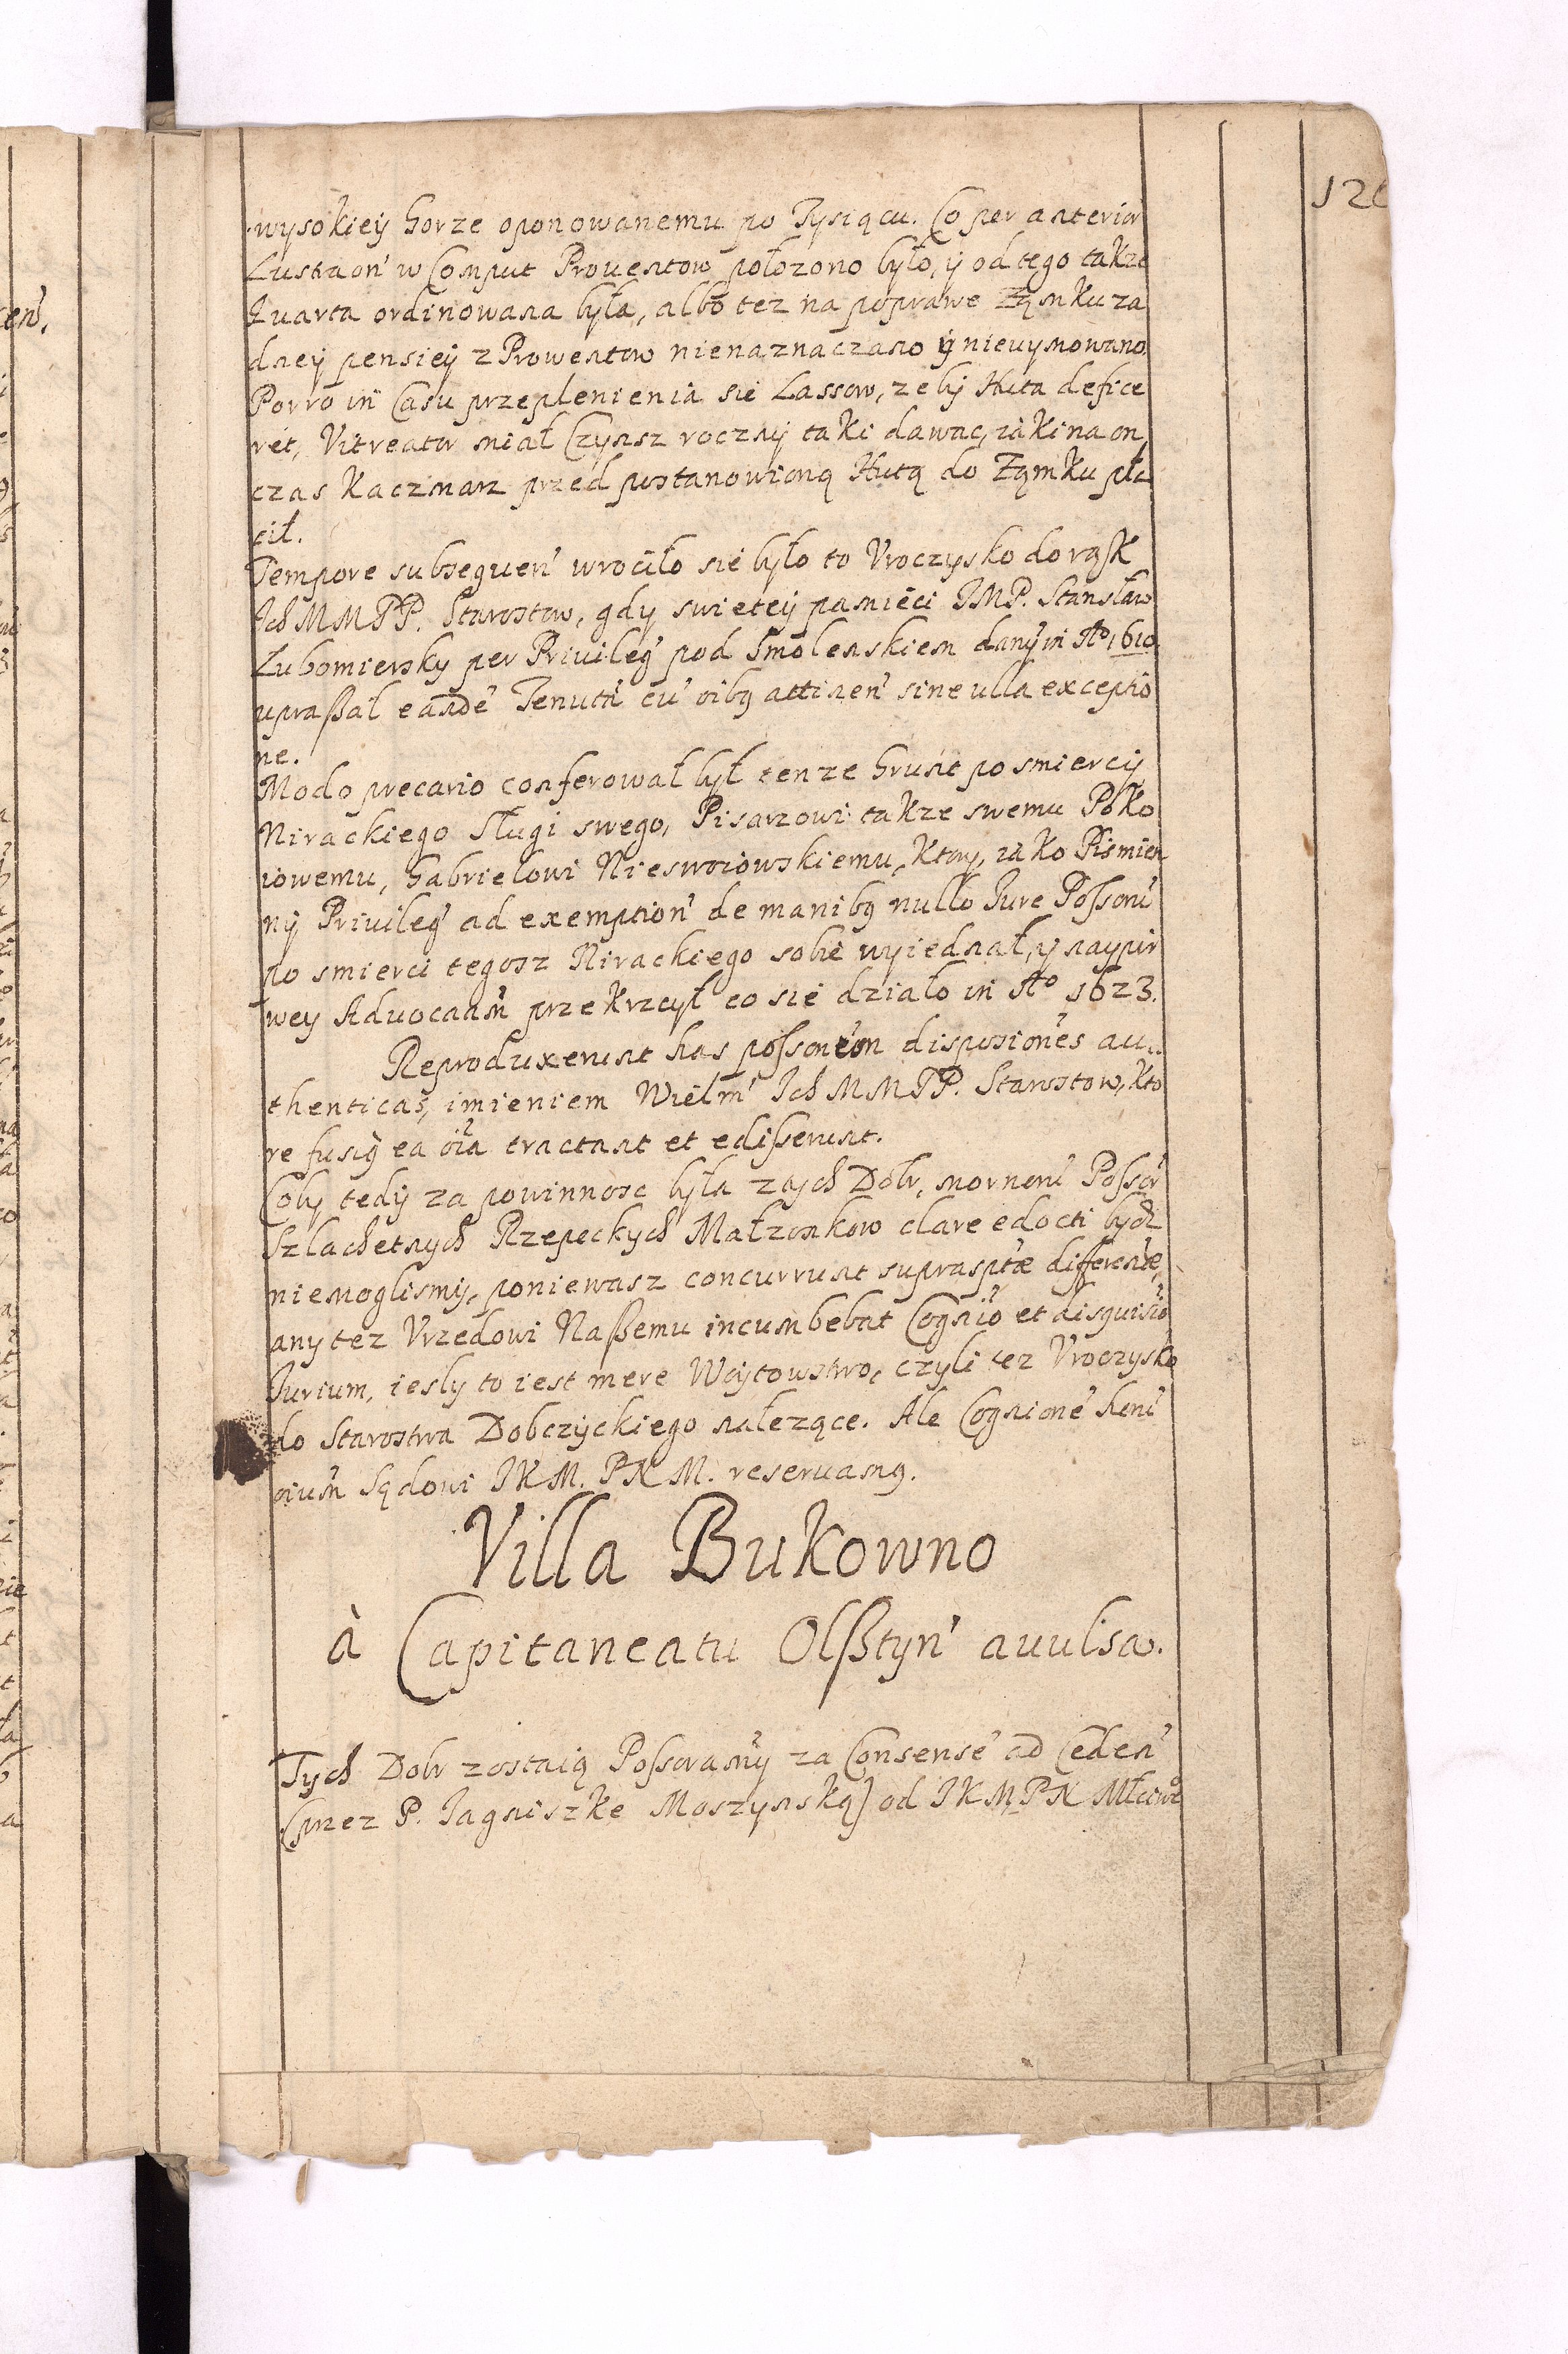 126
wysokiey Gorze oponowanemu po Tysiącu. Co per anterior
Lustraon̄ w Comput Prouentow położono było, ÿ od tego takze
Quarta ordinowana była, albo tez na poprawe Zamku za
dney pensiey z Prowentow nienaznaczano ÿ nieuymowano.
Porro in Casu przeplenienia sie Lassow, ze by Huta defice
ret, Vitreator miał Czynsz roczny taki dawac, iaki na on
czas Kaczmarz przed postanowioną Hutą do Zamku pła
cił.
Tempore subsequen' wrociło sie było to Vroczysko do rąk
Ich MM PP. Starostow, gdy swietey pamieci JMP. Stanisław
Lubomiersky per Privileg' pod Smolenskiem dany in Aº 1610
upraßał eandē Tenutā cū oibꝫ attinen' sine ulla exceptio
ne.
Modo precario conferował był tenze Grunt po smiercij
Nirackiego Sługi swego, Pisarzowi takze swemu Poko
iowemu, Gabrielowi Niesworowskiemu, Ktory, iako Pismien
ny Privileg' ad exemption' de manibꝫ nullo Jure Possoru'
po smierci tegosz Nirackiego sobie wyiednał, y naypir
wey Aduocaām przekrzcył co sie działo in Aº 1623.
Reproduxerunt has possorum disposiones au
thenticas, imieniem Wielm' Ich MM PP. Starostow, kto
re fusiꝫ ea oīa tractant et edisserunt.
Coby tedy za powinnosc była z tych Dobr, Possor
Szlachetnych Rzepeckych Małzonkow clare edocti bydz
niemoglismy, poniewasz concurrunt suprasptæ differentiæ,
any tez Vrzedowi Naßemu incumbebat Cognio et disquisio
Jurium, iesly to iest mere Woytowstwo, czyli tez Vroczysko
do Starostwa Dobczyckiego należące. Ale Cognione horu'
oium Sądowi JKM. PNM. reseruamꝫ.
Villa Bukowno
à Capitaneatu Olßtyn' auulsa.
Tych Dobr zostaią Possorami za Consensē ad Ceden'
(przez P. Jagniszke Moszynską) od JKM PN Młciwᵒ